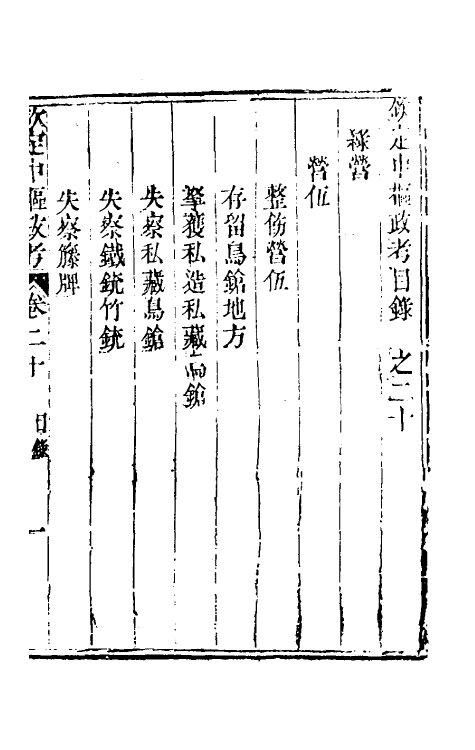 欽定中樞政考目錄 之二十
綠營
營伍
整飭營伍
存留鳥鎗地方
拏獲私造私藏鳥鎗
失察私藏鳥鎗
失察鐵銃竹銃
失察籐牌
欽定中樞政考 卷二十 目錄 一